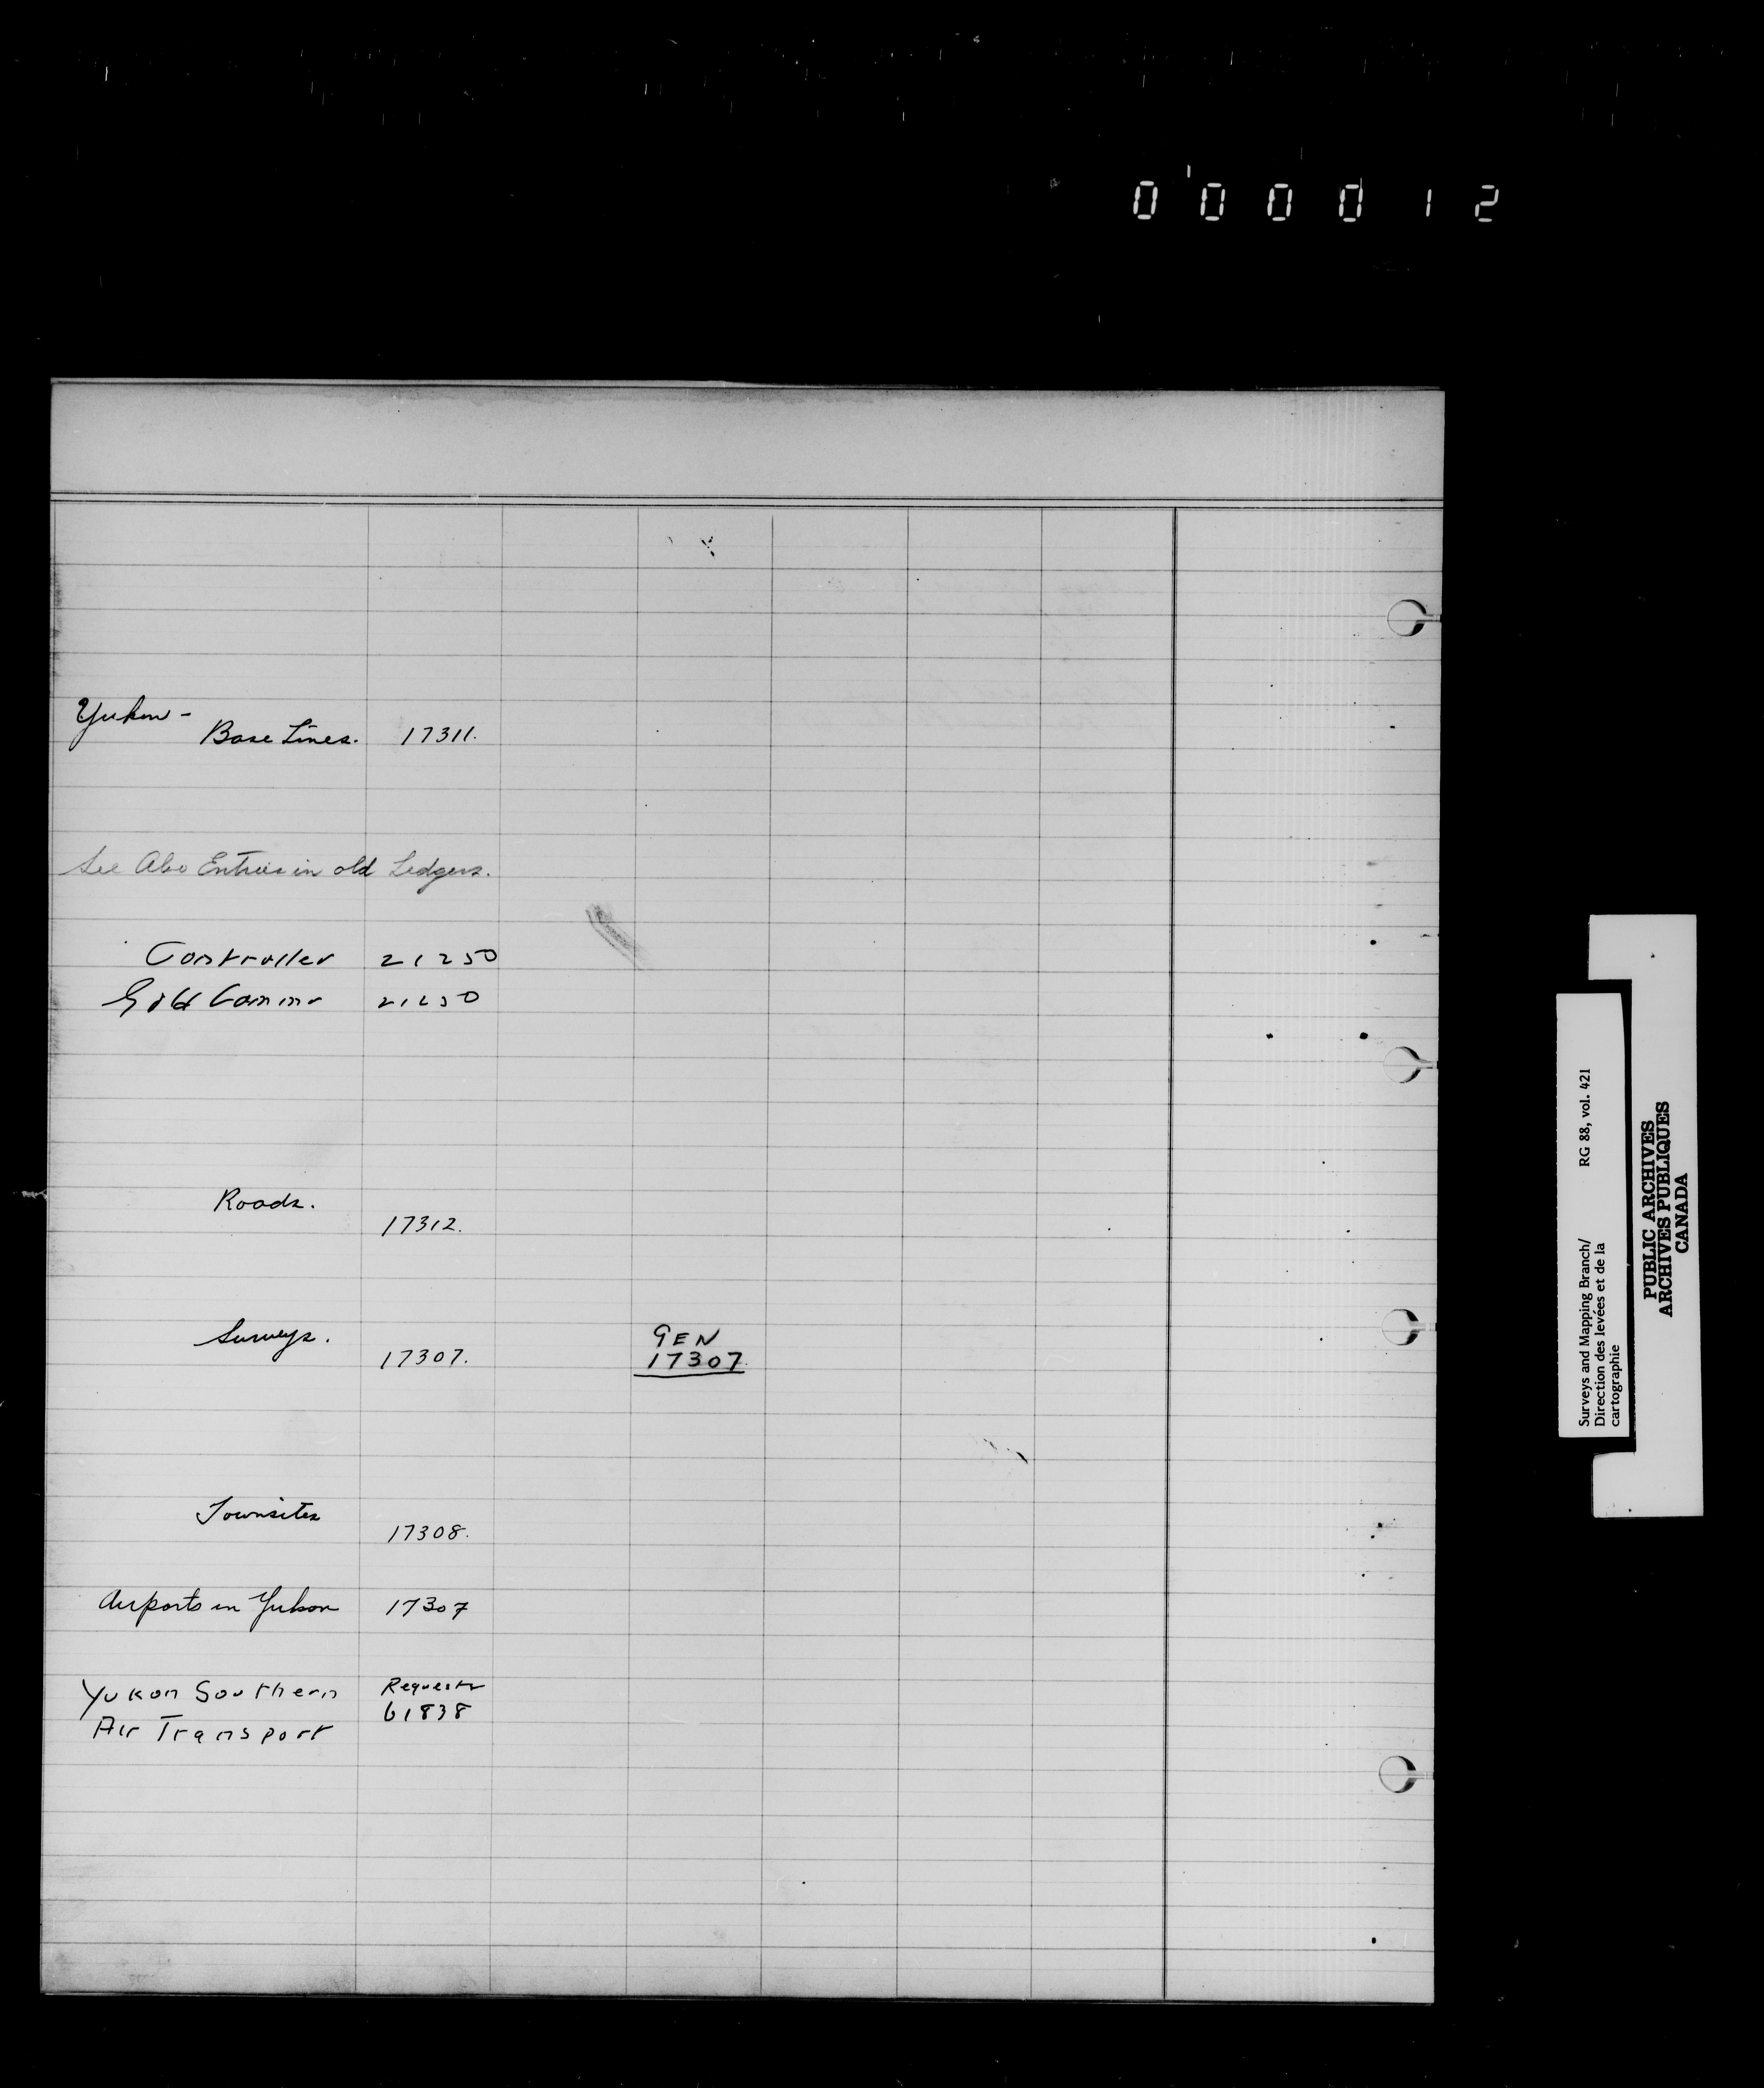 000012
Yukon -
Base Lines. 17311.
See Also Entries in old Ledgers.
Controller 21250
Gold Commr 21250
Roads.
17312.
Surveys.
17307.
GEN
17307.
Townsites
17308.
Airports in Yukon 17307
Yukon Southern Requests
Air Transport 61838
Surveys and Mapping Branch/ RG 88, vol. 421
Direction des levées et de la
cartographie
PUBLIC ARCHIVES
ARCHIVES PUBLIQUES
CANADA